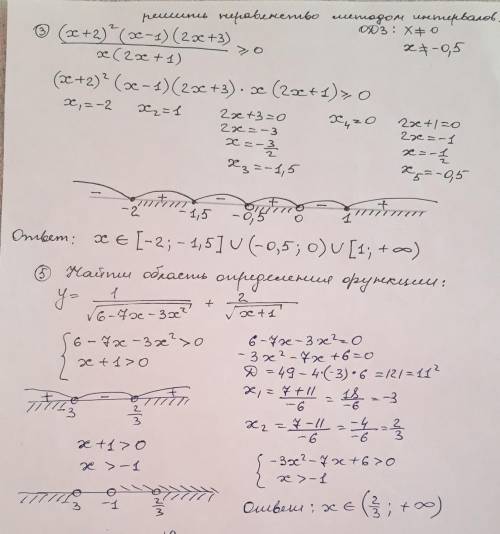 решить неравенство методом интервалов.
③ (x+2)²(x-1)(2x+3) / x(2x+1) ≥ 0
ОДЗ: x ≠ 0
x ≠ -0,5
(x+2)²(x-1)(2x+3)·x(2x+1) ≥ 0
x₁ = -2 x₂ = 1 2x+3=0 x₄ = 0 2x+1=0
2x = -3 2x = -1
x = -3/2 x = -1/2
x₃ = -1,5 x₅ = -0,5
- + - + - +
-2 -1,5 -0,5 0 1
Ответ: x ∈ [-2; -1,5] ∪ (-0,5; 0) ∪ [1; +∞)
⑤ Найти область определения функции:
y = 1/√(6-7x-3x²) + 2/√(x+1)
{ 6-7x-3x² > 0
x+1 > 0
6-7x-3x² = 0
-3x²-7x+6 = 0
D = 49-4·(-3)·6 = 121 = 11²
+ - +
3 2/3
x₁ = 7+11/-6 = 18/-6 = -3
x₂ = 7-11/-6 = -4/-6 = 2/3
x+1 > 0
x > -1
{ -3x²-7x+6 > 0
x > -1
3 -1 2/3
Ответ: x ∈ (2/3; +∞)